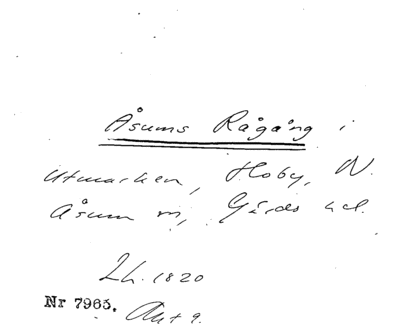 Åsums Rågång i
Utmarken, Hoby, N.
Åsum m, Gärds hd.
Lh. 1820
Nr 7965. Akt 9.